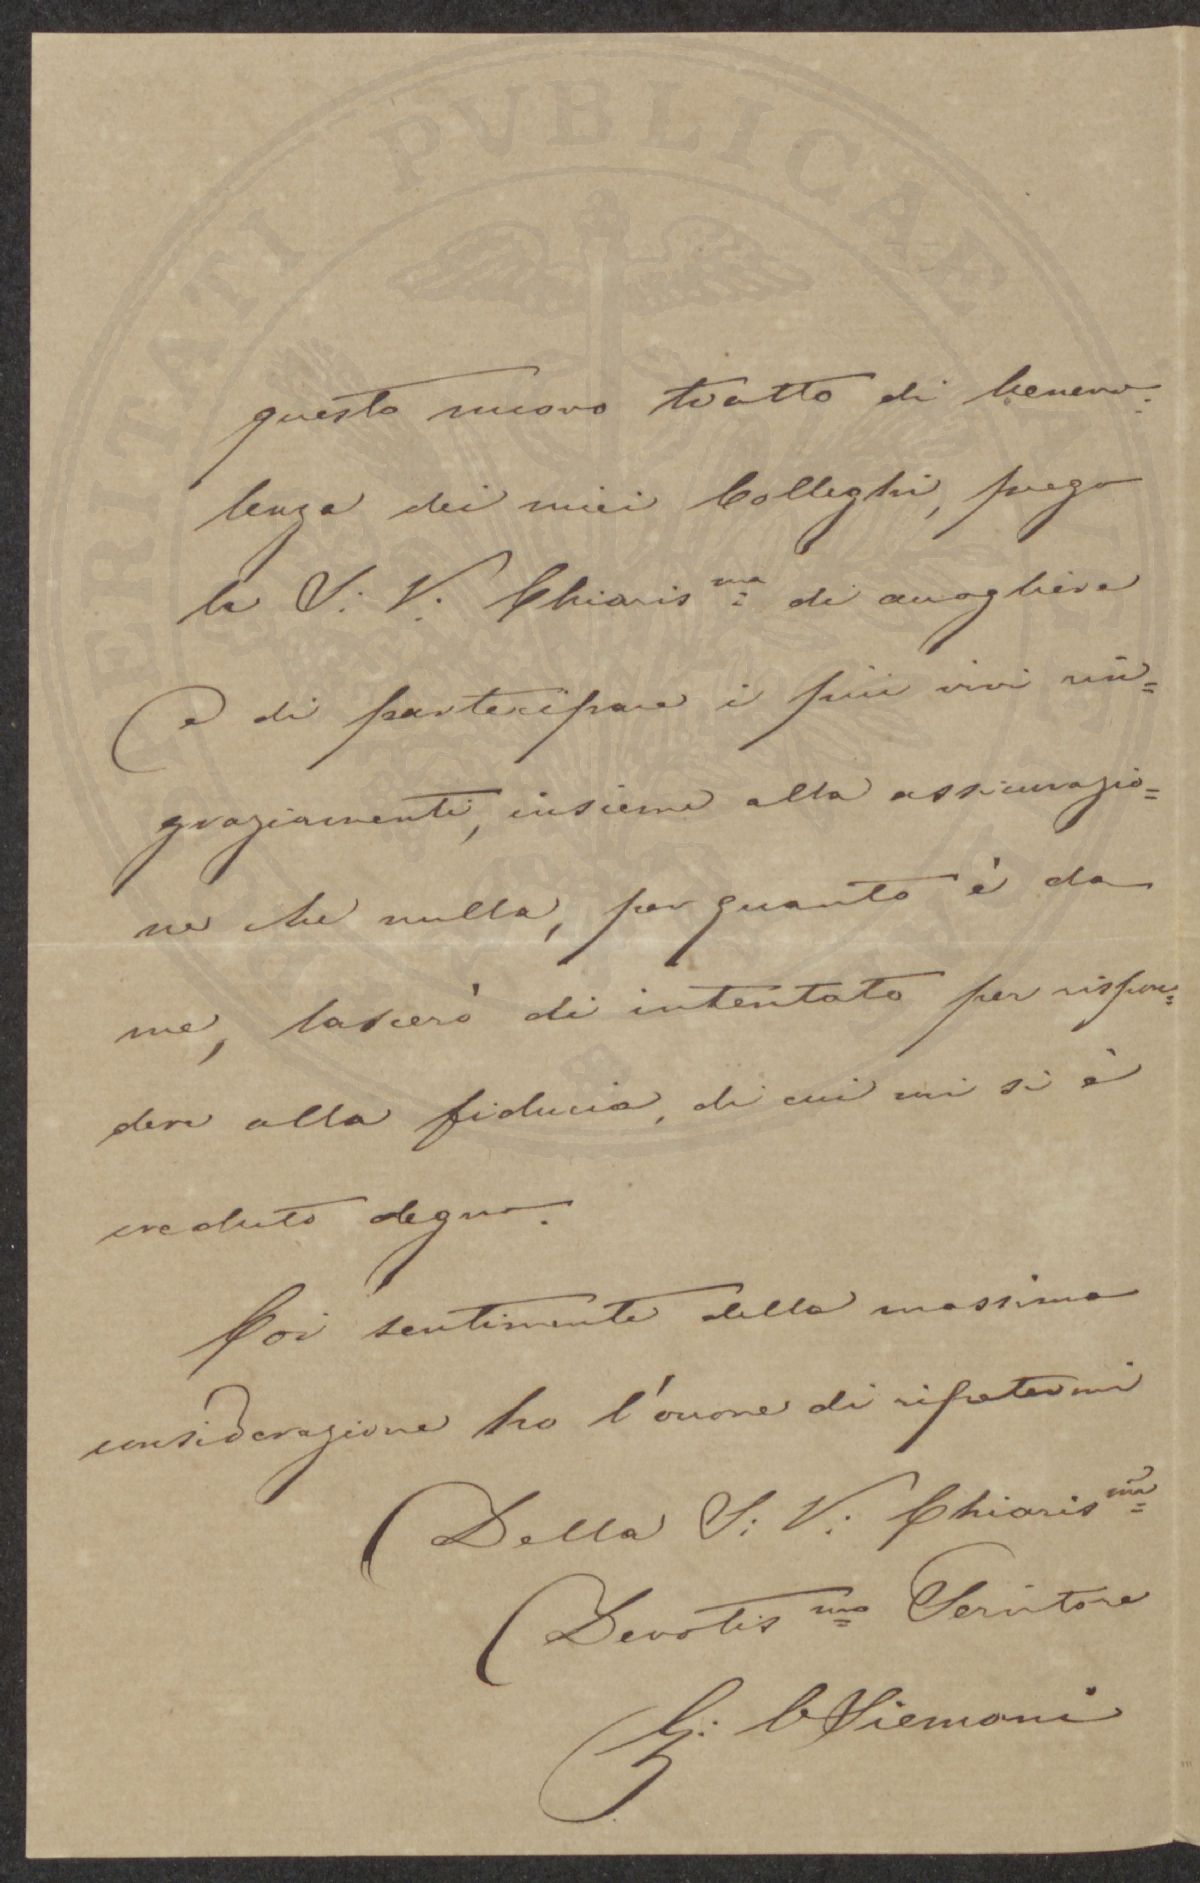 questo nuovo tratto di benevo-
lenza dei miei Colleghi, prego
la S. V. Chiaris.ma di accogliere
e di partecipare i più vivi rin=
graziamenti, insieme alla assicurazio=
ne che nulla, per quanto è da
me, lascerò di intentato per rispon=
dere alla fiducia, di cui mi si è
creduto degno.
Coi sentimenti della massima
considerazione ho l'onore di ripetermi
Della S. V. Chiaris.ma
Devotis.mo Servitore
G. C. Siemoni
PVBLICAE